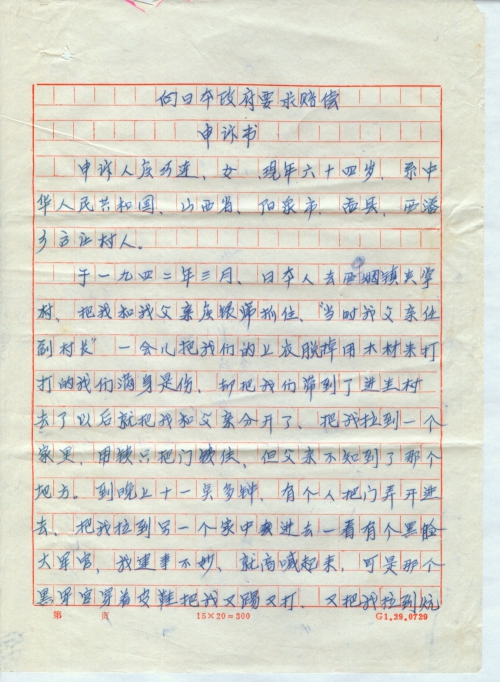 向日本政府要求赔偿
申诉书
申诉人 巧连、女 现年六十四岁、系中
华人民共和国、山西省、阳泉市、盂县、西潘
乡 村人。
于一九四二年三月、日本人去西烟镇 掌
村、把我和我父亲 银 抓住、“当时我父亲任
副村长”一会儿把我们的上衣脱掉用木材来打
打的我们满身是伤、却把我们带到了进圭村
去了以后就把我和父亲分开了、把我拉到一个
家里、用锁只把门锁住、但父亲不知到了那个
地方。到晚上十一点多钟、有个人把门弄开进
去、把我拉到另一个家中 进去一看有个黑脸
大军官、我 事不妙、就高喊起来、可是那个
黑军官穿着皮鞋把我又踢又打、又把我拉到炕
第 页 15×20=300 G1.29.0729